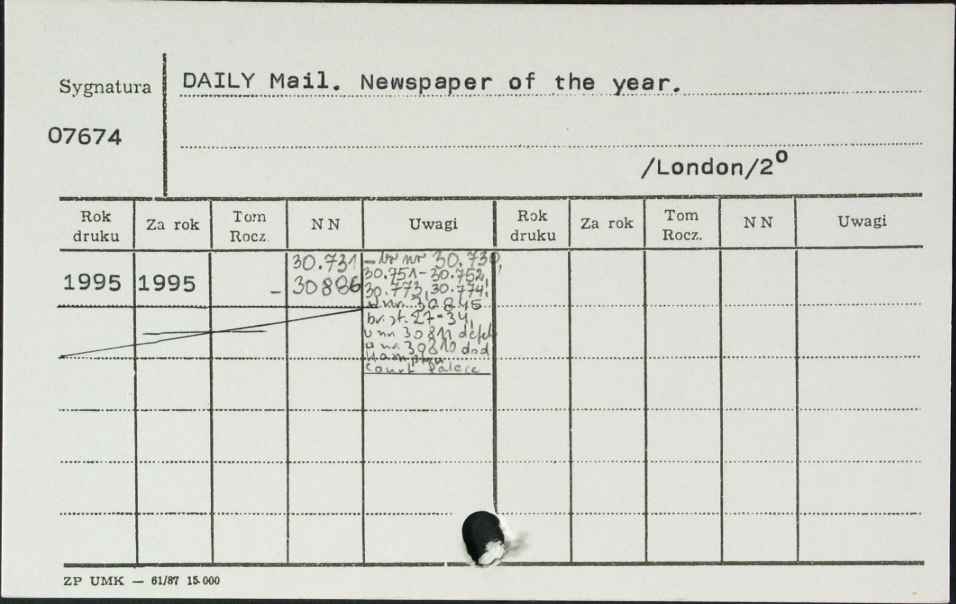 Sygnatura DAILY Mail. Newspaper of the year.
07674
/London/2º
Rok druku Za rok Tom Rocz. NN Uwagi Rok druku Za rok Tom Rocz. NN Uwagi
1995 1995 30.731 - 30886
30.751-30.752,
30.773, 30.774,
30845
27-34,
30811
30810 dod
Hampton
Court Palace
ZP UMK — 61/87 15.000